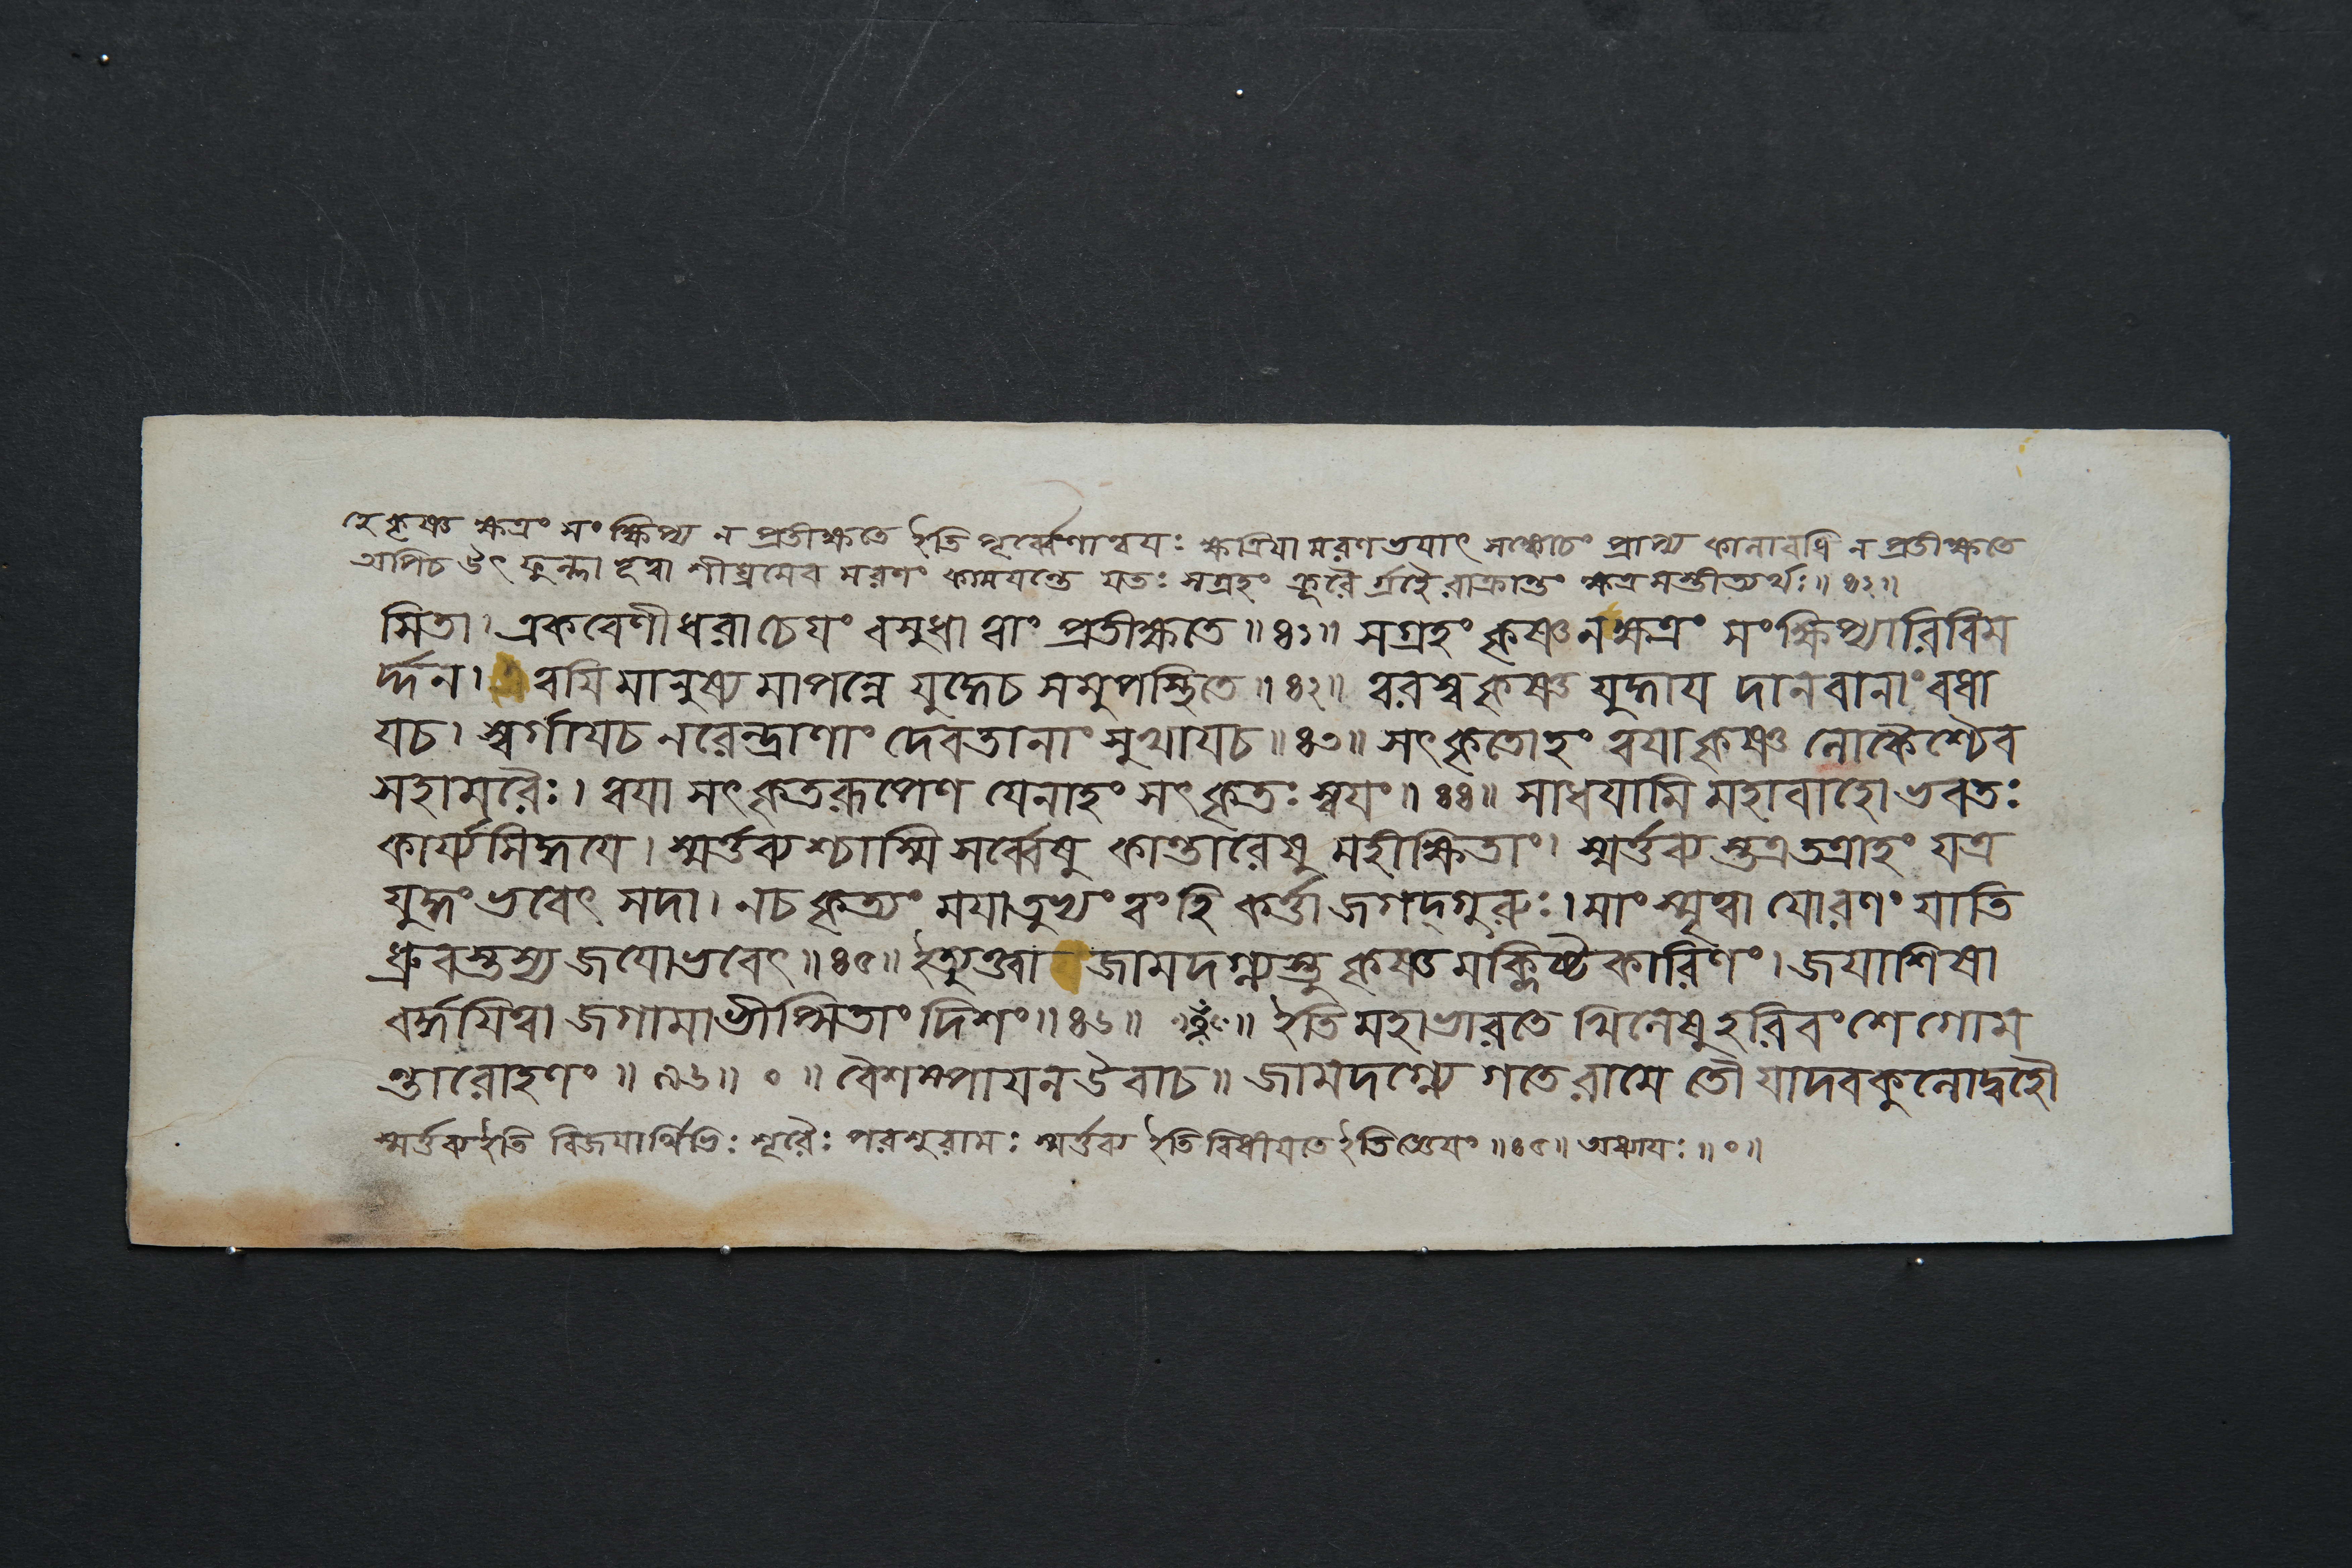 হে কৃষ্ণ ক্ষত্রং সংক্ষিপ্য ন প্রতীক্ষতে ইতি পূর্ব্বেণান্বয়ঃ ক্ষত্রিয়া মরণভয়াৎ সঙ্কোচং প্রাপ্য কালাবধি ন প্রতীক্ষতে
অপিচ উৎফুল্লা হূত্বা শীঘ্রমেব মরণং কাময়ন্তে যতঃ সগ্রহং ক্রূরৈর্গ্রহৈরাক্রান্তং ক্ষত্রমস্তীত্যর্থঃ॥ ৪২॥
মিতা। একবেণীধরা চেয়ং বসুধা ত্বাং প্রতীক্ষতে॥ ৪১॥ সগ্রহং কৃষ্ণ নক্ষত্রং সংক্ষিপ্যারিবিম
র্দ্দন। ত্বয়ি মানুষ্যমাপন্নে যুদ্ধেচ সমুপস্থিতে॥ ৪২॥ ত্বরস্ব কৃষ্ণ যুদ্ধায় দানবানাং বধা
য়চ। স্বর্গায়চ নরেন্দ্রাণাং দেবতানাং সুখায়চ॥ ৪৩॥ সৎকৃতোহং ত্বয়া কৃষ্ণ লোকৈশ্চৈব
সহামরৈঃ। ত্বয়া সৎকৃতরূপেণ যেনাহং সৎকৃতঃ স্বয়ং॥ ৪৪॥ সাধয়ামি মহাবাহো ভবতঃ
কার্য্যসিদ্ধয়ে। স্মর্ত্তব্যশ্চাস্মি সর্ব্বেষু কান্তারেষু মহীক্ষিতাং। স্মর্ত্তব্যস্তত্রতত্রাহং যত্র
যুদ্ধং ভবেৎ সদা। নচ কৃত্যং ময়াতুভ্যং ত্বং হি কর্ত্তা জগদ্গুরুঃ। মাং স্মৃত্বা যোরণং যাতি
ধ্রুবস্তস্য জয়োভবেৎ॥ ৪৫॥ ইত্যুক্ত্বা জামদগ্ন্যস্তু কৃষ্ণমক্লিষ্টকারিণং। জয়াশিষা
বর্দ্ধয়িত্বা জগামাভীপ্সিতাং দিশং॥ ৪৬॥ ॥ ইতি মহাভারতে খিলেষু হরিবংশে গোম
ন্তারোহণং॥ ৯৬॥ ०॥ বৈশম্পায়ন উবাচ॥ জামদগ্ন্যে গতে রামে তৌ যাদবকুলোদ্বহৌ
স্মর্ত্তব্য ইতি বিজয়ার্থিভিঃ শূরৈঃ পরশুরামঃ স্মর্ত্তব্য ইতি বিধীয়তে ইতি জ্ঞেয়ং॥ ৪৫॥ অধ্যায়ঃ॥ ०॥